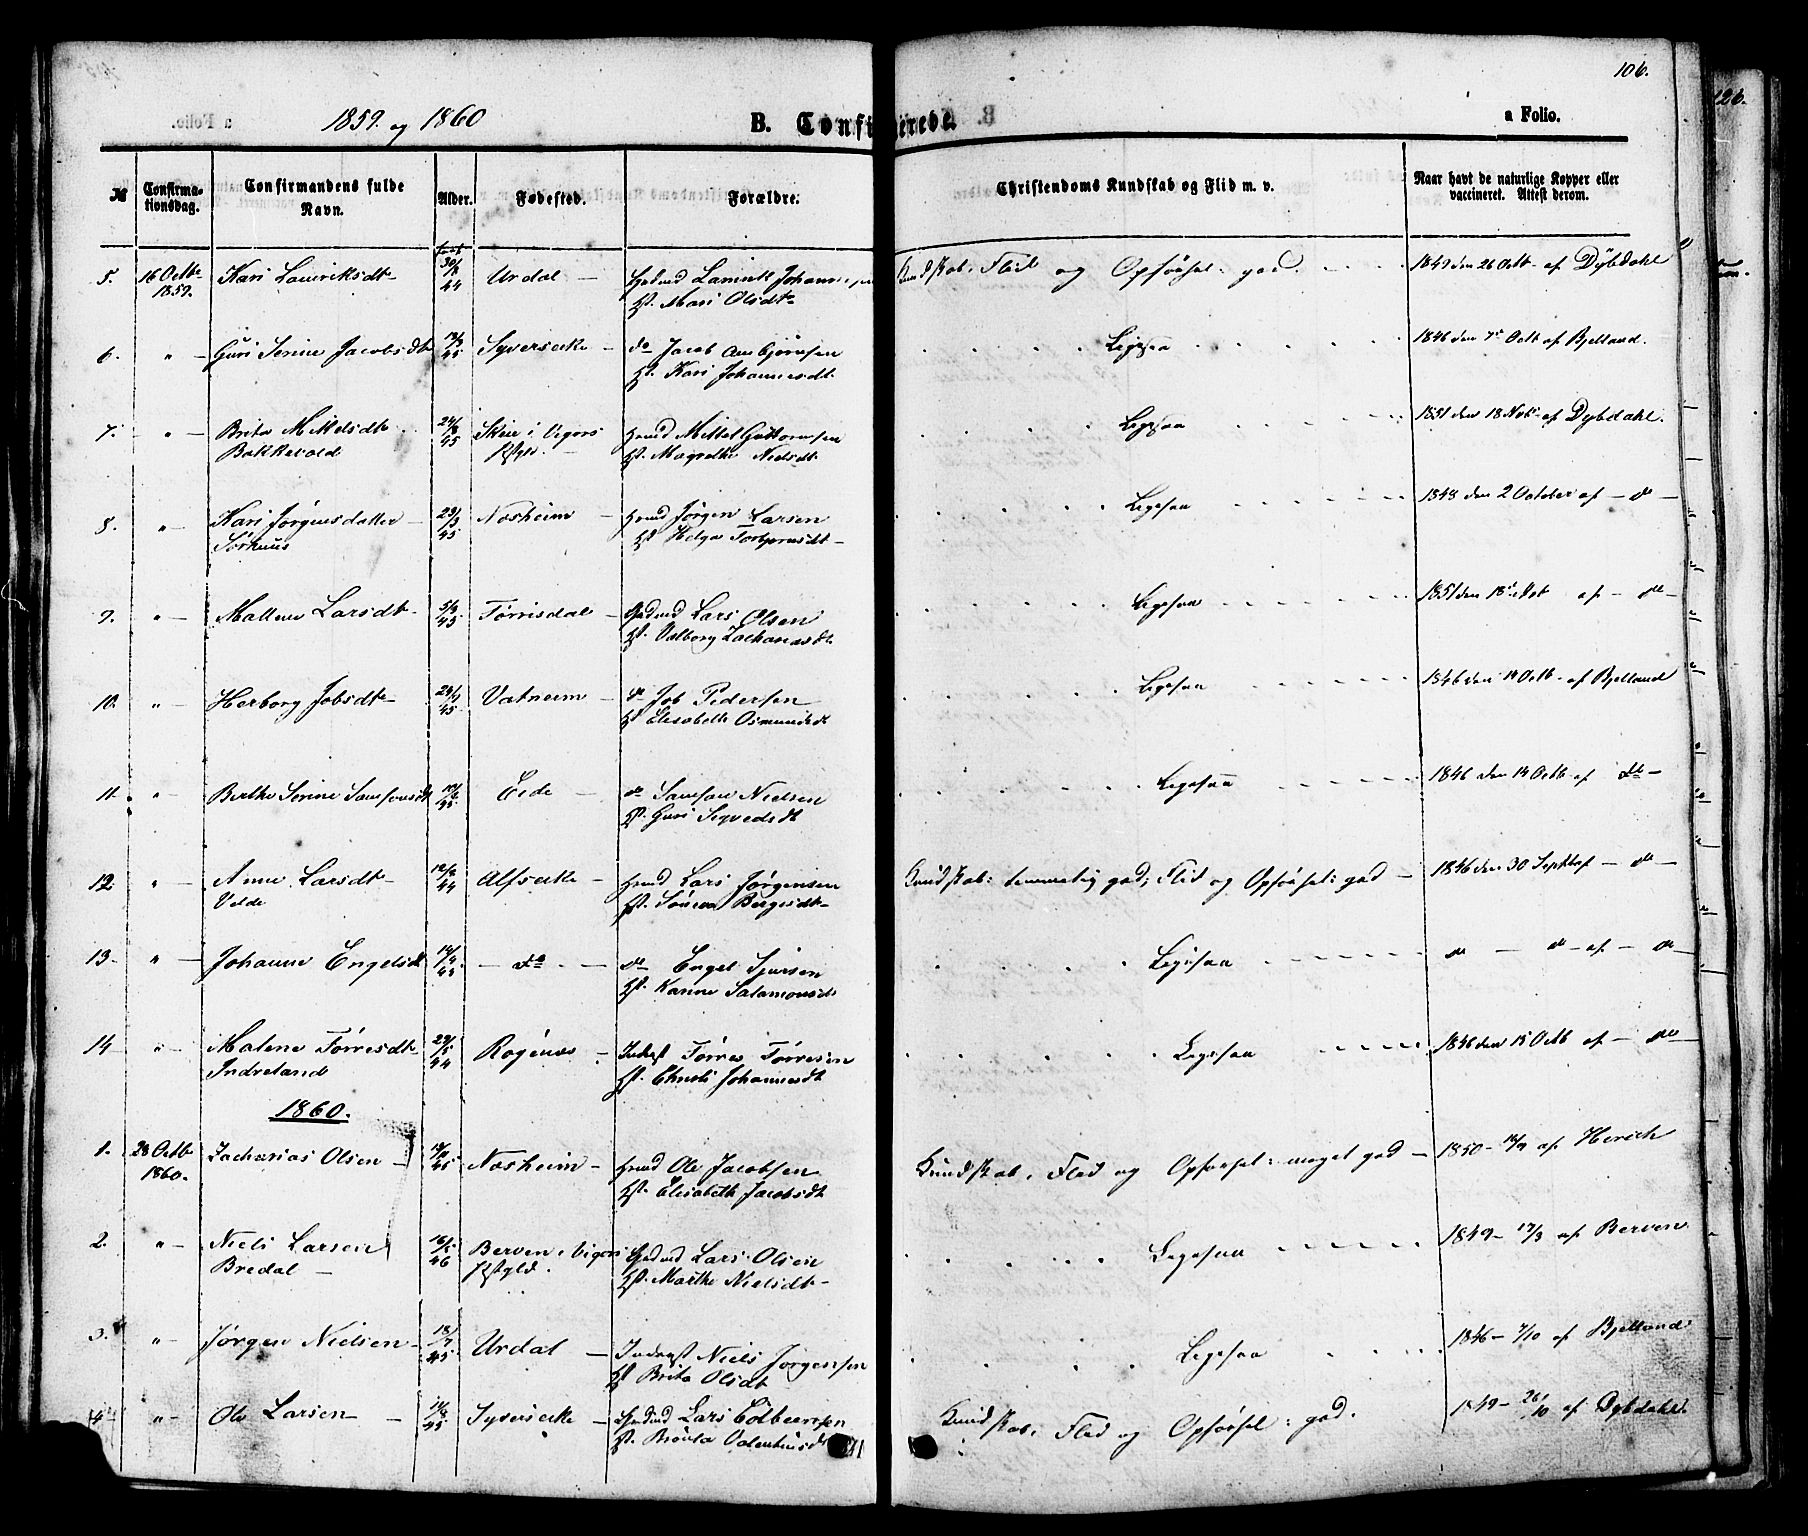 106.
126.
1859. og 1860
B. Confirmerede.
a Folio.
№
Confirma-
tionsdag.
Confirmandens fulde
Navn.
Alder.
Fødested.
Forældre.
Christendoms Kundskab og Flid m. v.
Naar havt de naturlige Kopper eller
vaccineret. Attest derom.
5. 16 Octb 1859. Kari Lauriksdt 30/8 44 Urdal Gaardmd Laurik Johannesen
H. Mari Olsdt
Kundskab, Flid og Opførsel: god.
1849 den 26 Octb af Dybdahl
6. " Guri Serine Jacobsdt 45 Syverseike do Jacob Aanbjørnsen
H. Kari Johannesdt.
Ligesaa
1846 den 7de Octb af Bjelland.
7. " Brita Mikkelsdt 24/8 45 Skeie i Vigørs
Bakkevold Pstgld.
Hmd Mikkel Guttormsen
H. Magrethe Nielsdt.
Ligesaa
1851 den 18 Nov af Dybdahl.
8. " Kari Jørgensdatter 29/3 45 Næsheim Hmd Jørgen Larsen
Sørhuus
H. Helga Torbjørnsdt
Ligesaa
1848 den 2 October af - do -
9. " Mallene Larsdt 5/3 45 Tørrisdal Gaardmd Lars Olsen
H. Valborg Zachariasdt.
Ligesaa
1851 den 18de Oct af - do -
10. " Herborg Jobsdt 45 Vatneim do Job Pedersen
H. Elisabeth Osmundsdt
Ligesaa
1846 den 14 Octb af Bjelland
11. " Berthe Serine Samsonsdt 45 Eide do Samson Nielsen
H. Guri Sigvedsdt
Ligesaa
1846 den 14 Octb af do -
12. " Anne Larsdt 44 Alfseike Hmd Lars Jørgensen
Velde
H. Sørine Bergesdt
Kundskab: temmelig god; Flid og Opførsel: god
1846 den 30 Septbr af - do -
13. " Johanne Engelsdt 14/4 45 - do - do Engel Sjursen
H. Karine Salamonsdt
Ligesaa
do - do - af - do
14 " Malene Tørresdt 29/5 44 Røgenæs Inderst Tørres Tørresen
Indreland
H. Christi Johannesdt
Ligesaa
1846 den 15 Octb af - do
1860.
1. 28 Octb 1860. Zacharias Olsen 45 Næsheim Hmd Ole Jacobsen
H. Elisabeth Jacobsdt
Kundskab, Flid og Opførsel: meget god
1850 - 18/9 af Hersch
2. " Niels Larsen 16/1 46 Berven i Vigørs
Bredal Pstgld.
Gaardmd Lars Olsen
H. Marthe Nielsdt
Ligesaa
1849 - 17/3 af Berven
3. " Jørgen Nielsen 18/7 45 Urdal Inderst Niels Jørgensen
H. Brita Olsdt
Ligesaa
1846 - 7/10 af Bjelland
4 " Ole Larsen 45 Syverseike Gaardmd Lars Colbeensen
H. Brønla Valentinsdt
Kundskab, Flid og Opførsel: god.
1849 - 26/10 af Dybdahl.